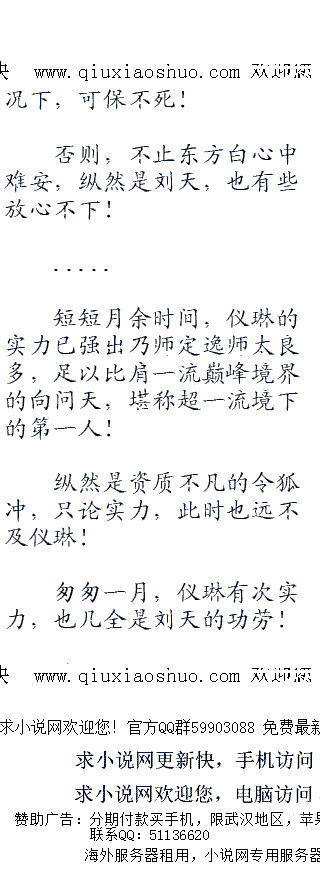 快 www.qiuxiaoshuo.com 欢迎您
况下，可保不死！
否则，不止东方白心中
难安，纵然是刘天，也有些
放心不下！
.....
短短月余时间，仪琳的
实力已强出乃师定逸师太良
多，足以比肩一流巅峰境界
的向问天，堪称超一流境下
的第一人！
纵然是资质不凡的令狐
冲，只论实力，此时也远不
及仪琳！
匆匆一月，仪琳有次实
力，也几全是刘天的功劳！
快 www.qiuxiaoshuo.com 欢迎您
求小说网欢迎您！官方QQ群59903088 免费最新
求小说网更新快，手机访问
求小说网欢迎您，电脑访问
赞助广告：分期付款买手机，限武汉地区，苹果
联系QQ：51136620
海外服务器租用，小说网专用服务器